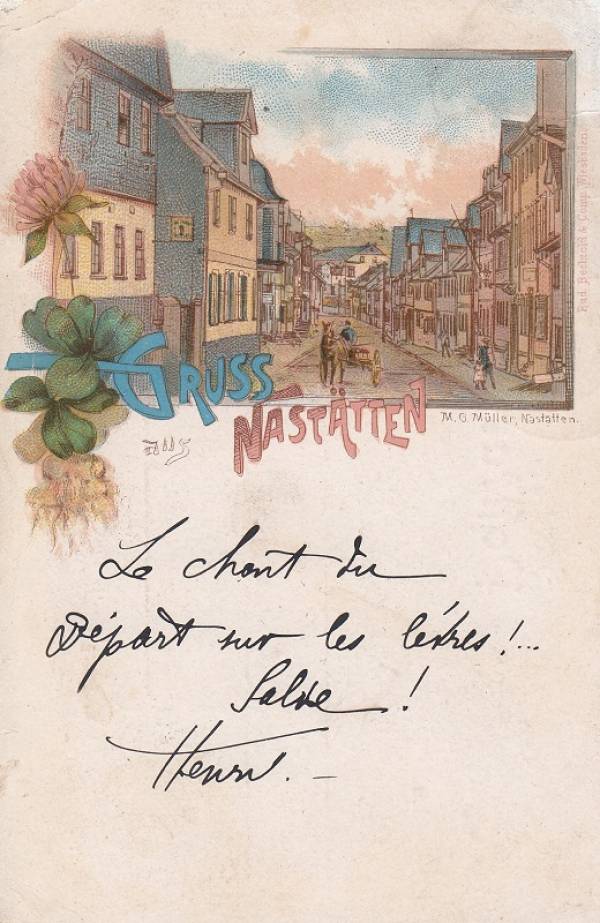 GRUSS
aus
NASTÄTTEN
M. O. Müller, Nastätten.
Rud. Bechtold & Comp. Wiesbaden.
Le chant du
Départ sur les lèvres!...
Salve!
Henri. –